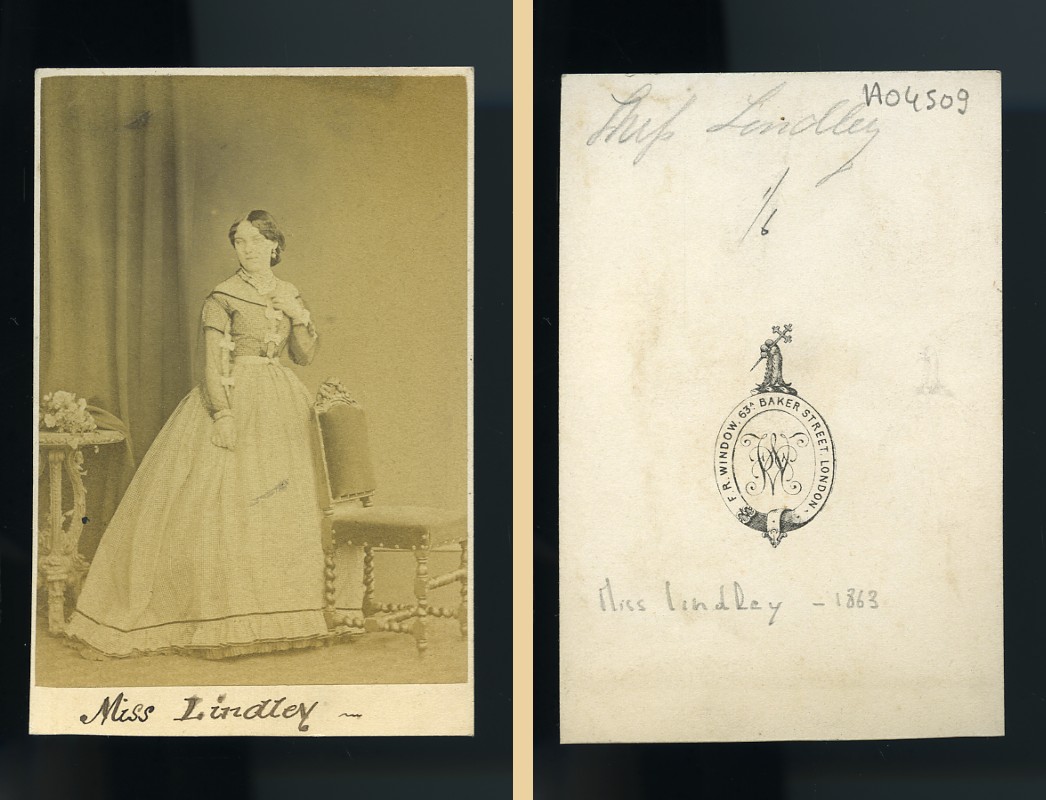 Miss Lindley
Miss Lindley
A04509
1/6
F. R. WINDOW, 63A BAKER STREET, LONDON.
Miss Lindley - 1863